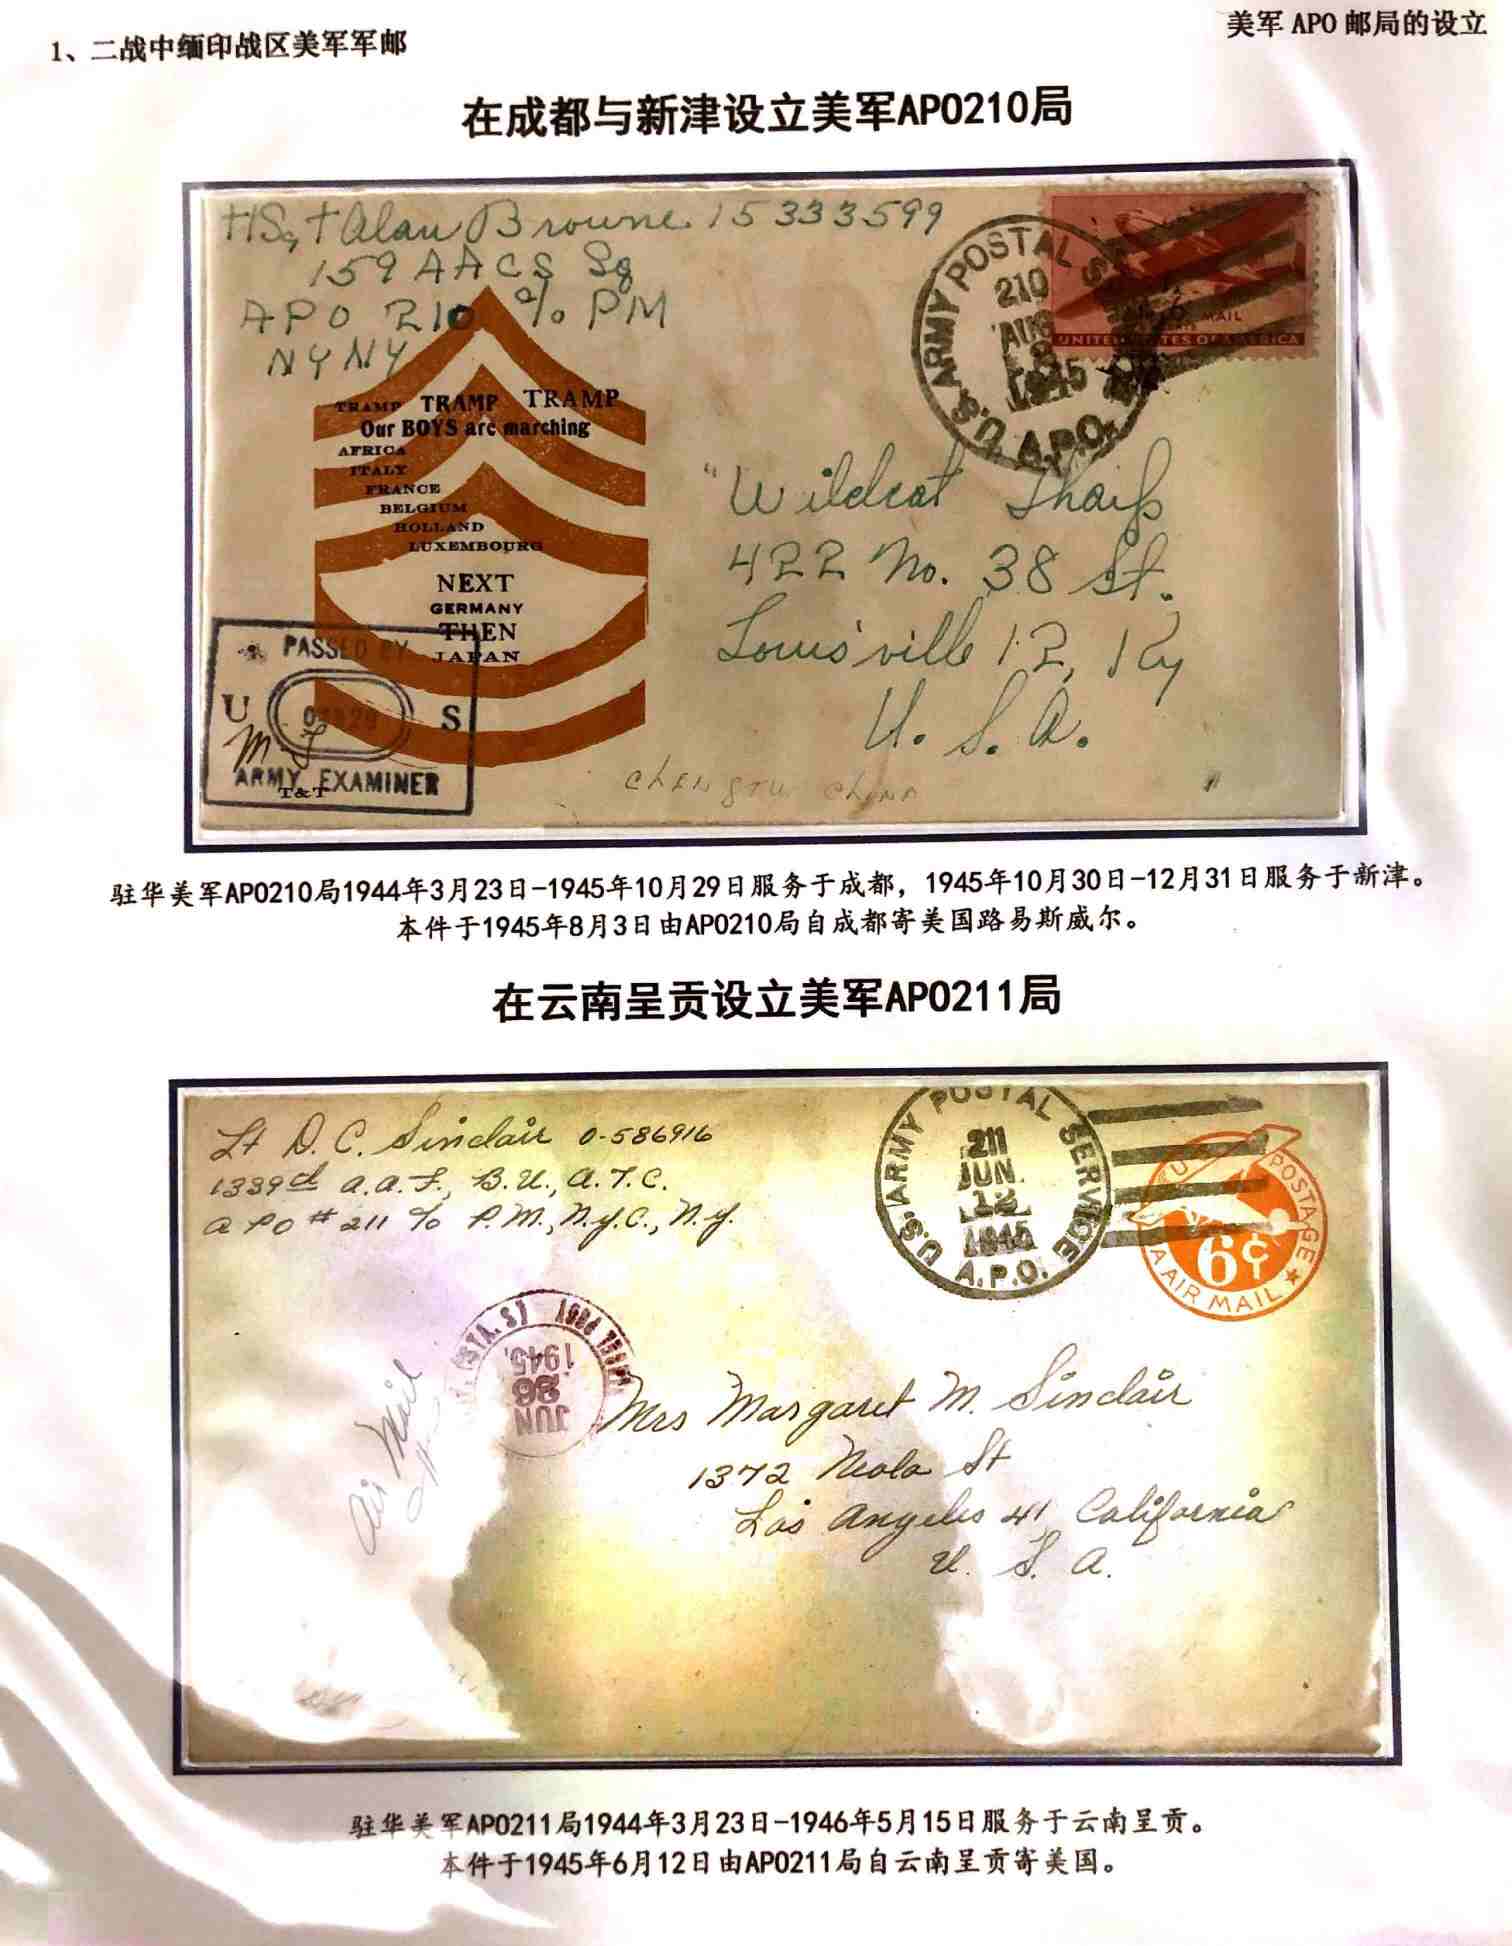 1、二战中缅印战区美军军邮
美军 APO 邮局的设立
在成都与新津设立美军APO210局
HSgt Alan Browne 15333599
159 AACS Sq
APO 210 % PM
NY NY
TRAMP TRAMP TRAMP
Our BOYS are marching
AFRICA
ITALY
FRANCE
BELGIUM
HOLLAND
LUXEMBOURG
NEXT
GERMANY
THEN
JAPAN
T&T
PASSED BY
U S
ARMY EXAMINER
U.S. ARMY POSTAL
A.P.O.
210
AUG
3
1945
MAIL
UNITED STATES OF AMERICA
"Wildcat Tharp
422 No. 38 St.
Louisville 12, Ky
U. S. A.
Chengtu China
驻华美军APO210局1944年3月23日-1945年10月29日服务于成都，1945年10月30日-12月31日服务于新津。
本件于1945年8月3日由APO210局自成都寄美国路易斯威尔。
在云南呈贡设立美军APO211局
Lt D. C. Sinclair O-586916
1339th A.A.F., B.U., A.T.C.
APO # 211 % P.M., N.Y.C., N.Y.
U.S. ARMY POSTAL SERVICE
A.P.O.
211
JUN
12
1945
POSTAGE
6¢
AIR MAIL
JUN
26
1945
Air Mail
Mrs Margaret M. Sinclair
1372 Neola St
Los Angeles 41 California
U. S. A.
驻华美军APO211局1944年3月23日-1946年5月15日服务于云南呈贡。
本件于1945年6月12日由APO211局自云南呈贡寄美国。